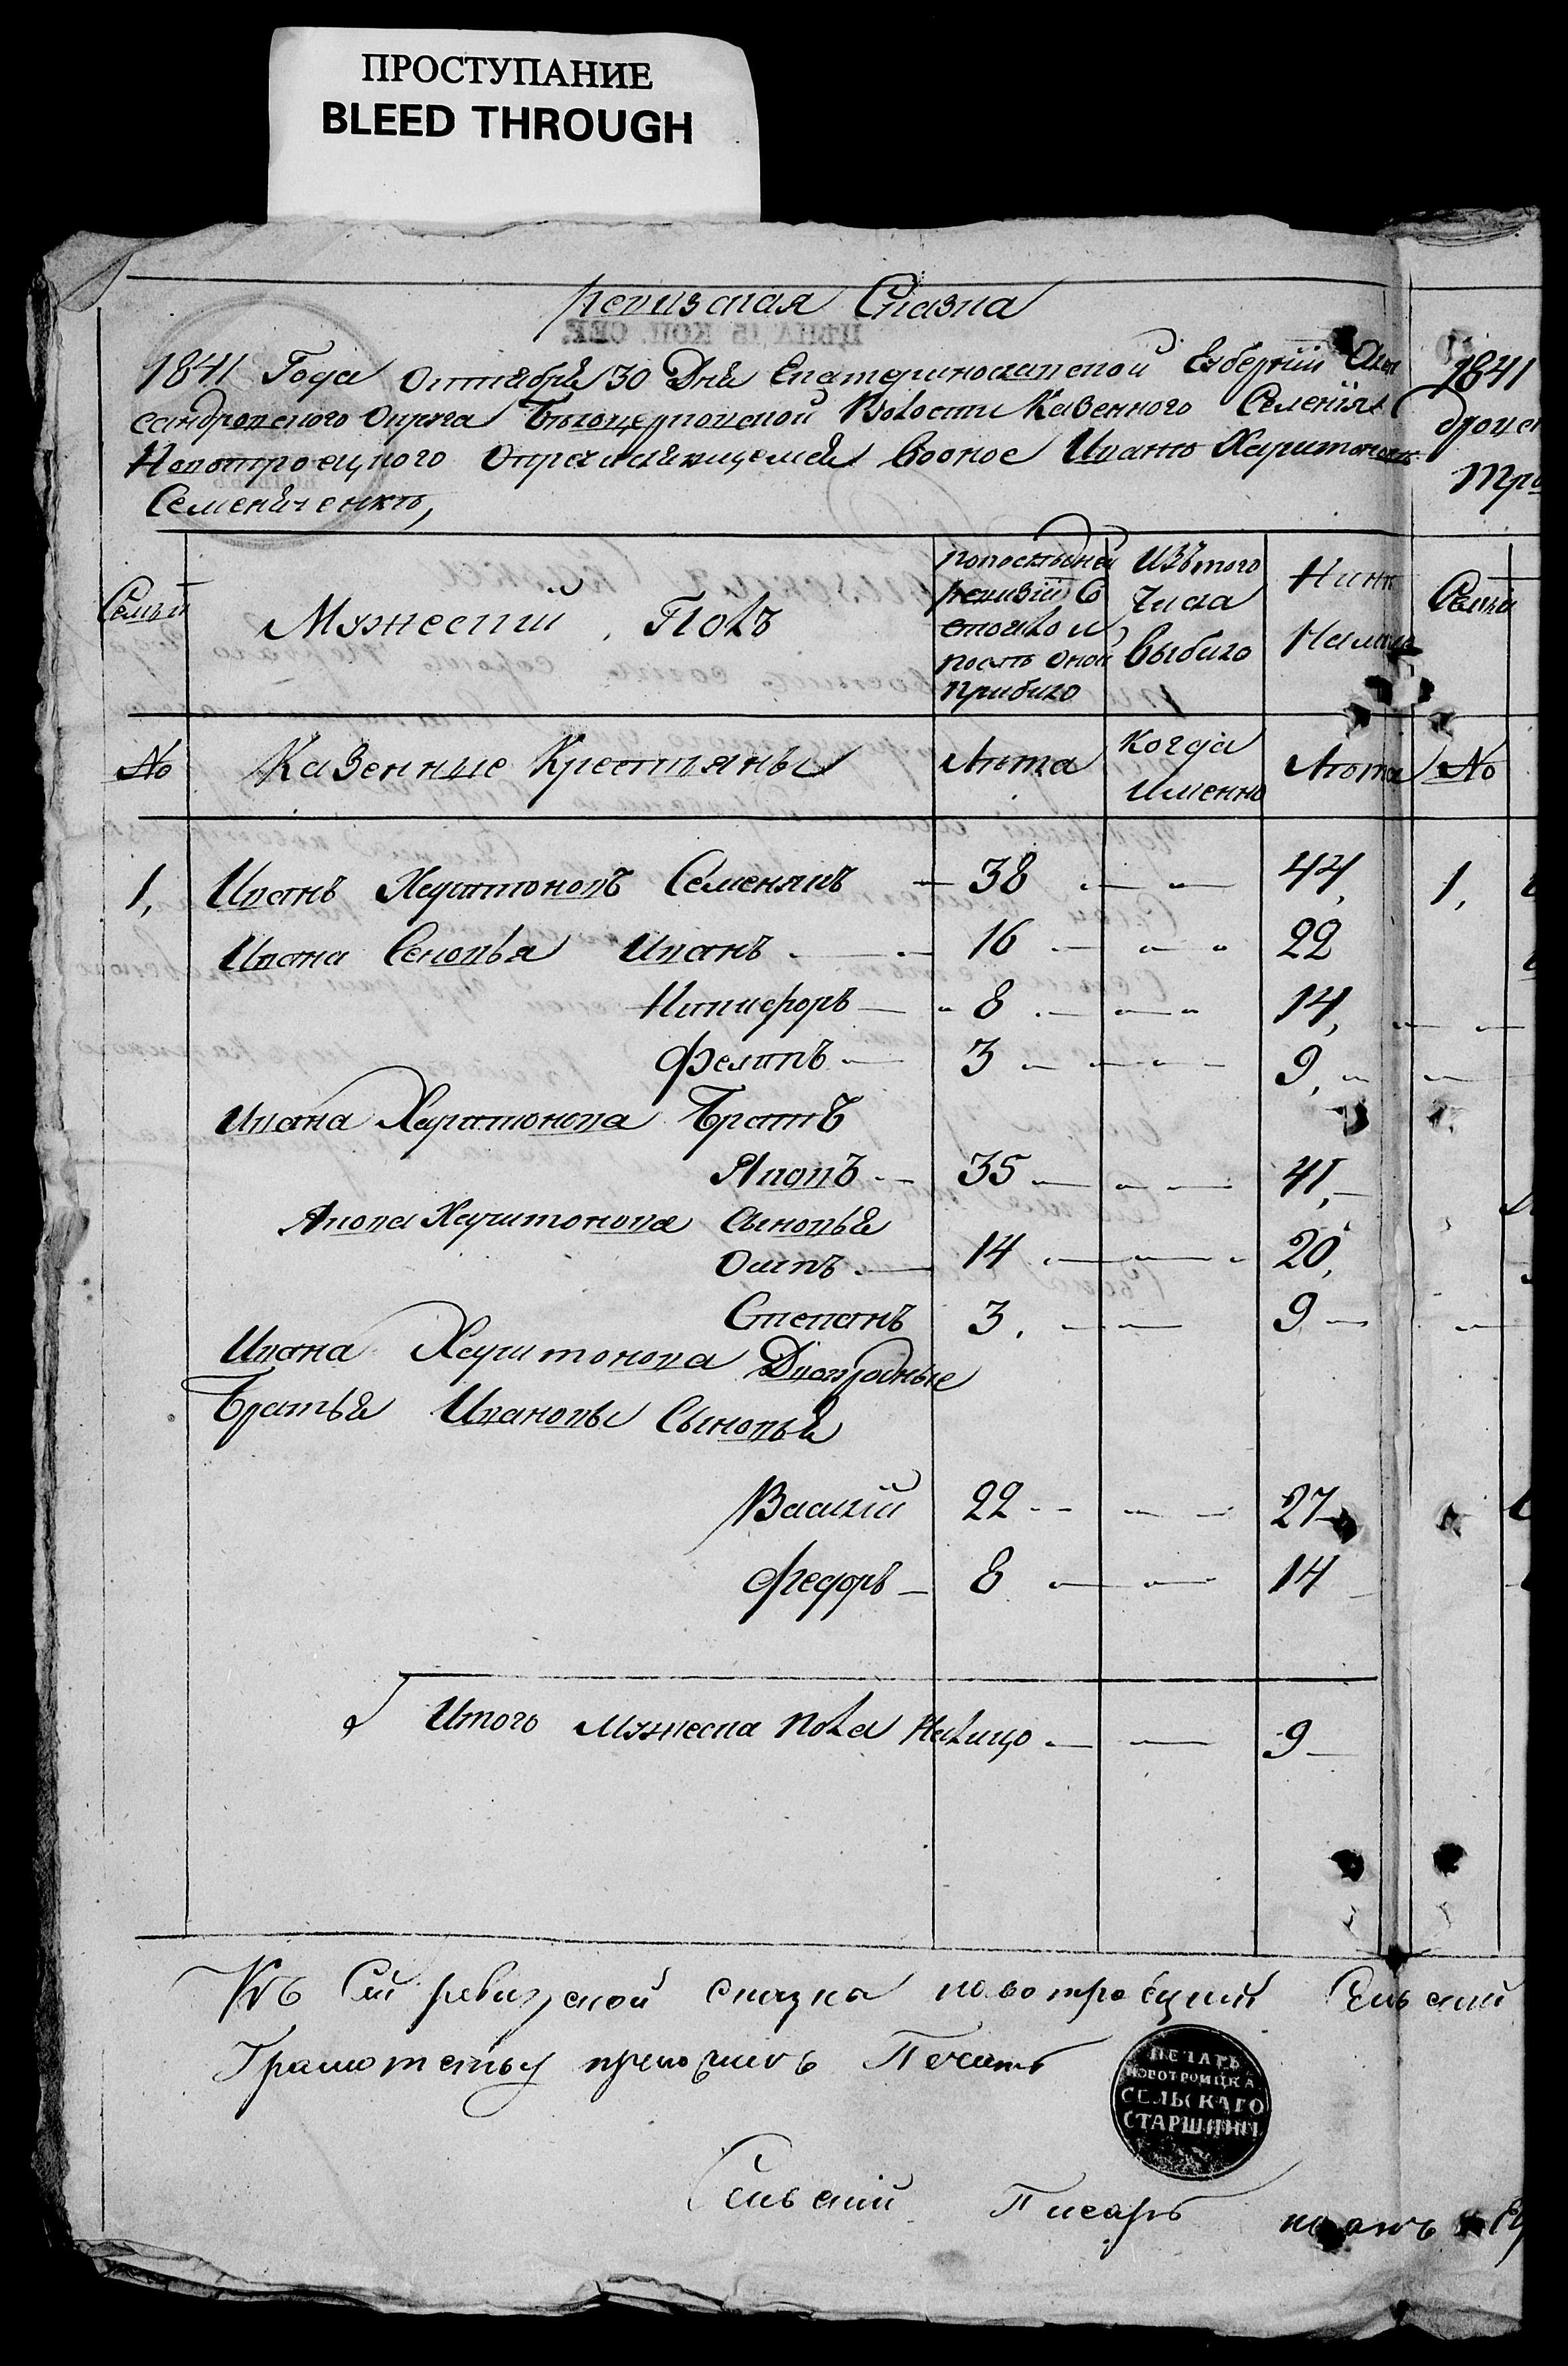 ПРОСТУПАНИЕ
BLEED THROUGH
ревизская Сказка
ЦѢНА 15 КОП. СЕР.
1841 Года Октября 30 Дня Екатеринославской Губернии Алек
сандровского Округа Белоцерковской Волости Казенного Селения
Новотроецкого Иванъ Харитоновъ
Семениченкъ,
Семьи
Мужеский Полъ
По последней ревизии Состояло и после оной прибыло
Изъ того Числа Выбыло
Ныне На лицо
Семьи
№ Казенные Крестьяны Лѣта Когда Именно Лѣта №
1, Иванъ Харитоновъ Семенякъ — 38 — — 44, 1,
Ивана Сыновья Иванъ — 16 — 22
Никифоръ — 8 — 14,
Фелипъ — 3 — 9,
Ивана Харитонова Братъ
Яковъ — 35 — 41,
Якова Харитонова Сыновья
Осипъ — 14 — 20,
Степанъ 3. — 9 —
Ивана Харитонова Двоюродные
Братья Ивановы Сыновья
Василий 22 — 27
Федоръ — 8 — 14
Итого Мужеска пола Налицо — — 9 —
Къ Сей ревизской сказке новотроецкий Сельский
печать
ПЕЧАТЬ
НОВОТРОИЦКА
СЕЛЬСКАГО
СТАРШИНЫ
Сельский Писарь
1841